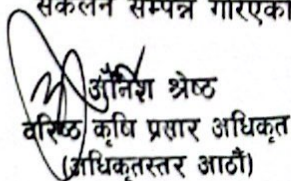 संकलन सम्पन्न गरिएको
अँनिश श्रेष्ठ
वरिष्ठ कृषि प्रसार अधिकृत
(अधिकृतस्तर आठौं)